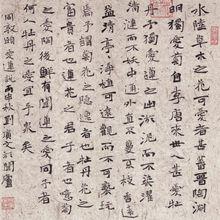 水陸草木之花可愛者甚蕃晉陶淵
明獨愛菊自李唐來世人甚愛牡
丹予獨愛蓮之出淤泥而不染濯
清漣而不妖中通外直不蔓不枝香遠
益清亭亭淨植可遠觀而不可褻玩
焉予謂菊花之隱逸者也牡丹花之
富貴者也蓮花之君子者也噫菊
之愛陶後鮮有聞蓮之愛同予者
何人牡丹之愛宜乎眾矣
周敦頤愛蓮說丙申秋劉